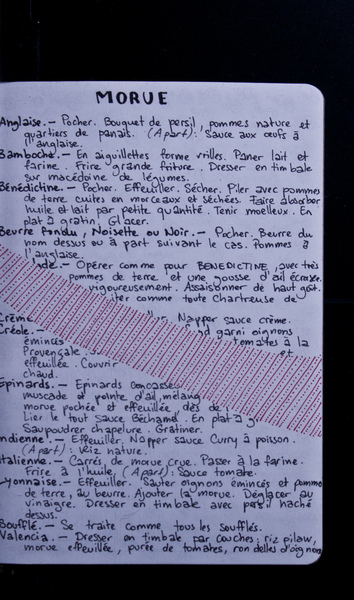 MORUE
Anglaise.— Pocher. Bouquet de persil, pommes nature et
quartiers de panais. (A part): Sauce aux oeufs à
l'anglaise.
Bamboche.— En aiguillettes forme vrilles. Paner lait et
farine. Frire grande friture. Dresser en timbale
sur macédoine de légumes.
Bénédictine.— Pocher. Effeuiller. Sécher. Piler avec pommes
de terre cuites en morceaux et séchées. Faire absorber
huile et lait par petite quantité. Tenir moelleux. En
plat à gratin. Glacer.
Beurre Fondu, Noisette ou Noir.— Pocher. Beurre du
nom dessus ou à part suivant le cas. Pommes à
l'anglaise.
Opérer comme pour BENEDICTINE, avec très
pommes de terre et une gousse d'ail écrasée.
vigoureusement. Assaisonner de haut goût.
comme toute Chartreuse de
Crème. Napper sauce crème.
Créole.— garni oignons
émincés tomates à la
Provençale. et
effeuillée. Couvrir
chaud.
Epinards.— Epinards concassés
muscade et pointe d'ail, mélang
morue pochée et effeuillée, dés de
Lier le tout sauce Béchamel. En plat à g
Saupoudrer chapelure. Gratiner.
Indienne.— Effeuiller. Napper sauce Curry à poisson.
(A part): Riz nature.
Italienne.— Carrés de morue crue. Passer à la farine.
Frire à l'huile. (A part): Sauce tomate.
Lyonnaise.— Effeuiller. Sauter oignons émincés et pomme
de terre, au beurre. Ajouter la morue. Déglacer au
vinaigre. Dresser en timbale avec persil haché
dessus.
Soufflé.— Se traite comme tous les soufflés.
Valencia.— Dresser en timbale par couches: riz pilaw,
morue effeuillée, purée de tomates, rondelles d'oignon